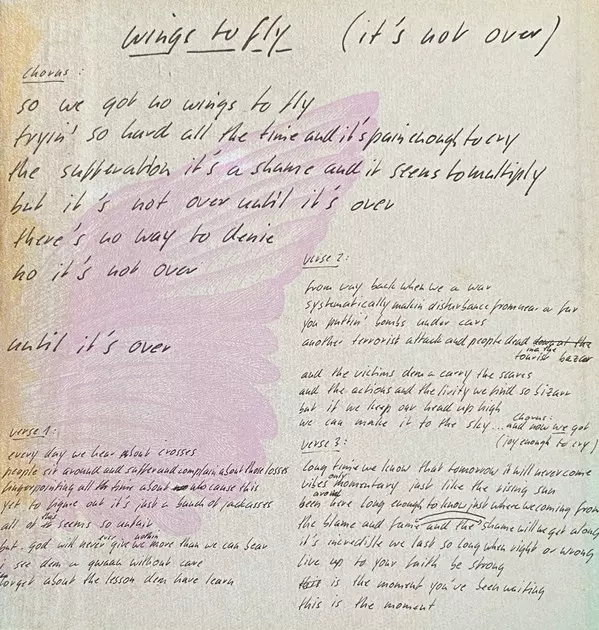 wings to fly (it's not over)
chorus:
so we got no wings to fly
tryin' so hard all the time and it's pain enough to cry
the sufferation it's a shame and it seems to multiply
but it's not over until it's over
there's no way to denie
no it's not over
until it's over
verse 1:
every day we hear about crosses
people sit around and suffer and complain about those losses
fingerpointing all the time about who cause this
yet to figure out it's just a bunch of jackasses
all of this seems so unfair
but god will never ever give us nothin more than we can bear
I see dem a gwaan without care
forget about the lesson dem have learn
verse 2:
from way back when we a war
systematically makin disturbance from near or far
you puttin' bombs under cars
another terrorist attack and people dead down at the
in a the
tourist bazar
and the victims dem a carry the scares
and the actions and the livity we find so bizarr
but if we keep our head up high
we can make it to the sky ... and now we got
chorus:
(joy enough to cry)
verse 3:
long time we know that tomorrow it will never come
vibes only momentary just like the rising sun
been around here long enough to know just where we coming from
the blame and fame and the shame will get along
it's incredible we last so long when right or wrong
live up to your faith be strong
this is the moment you've been waiting
this is the moment